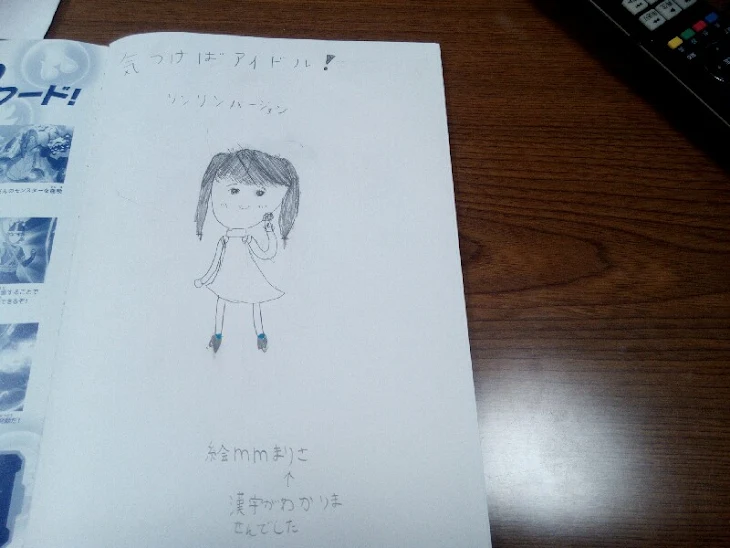 気つけばアイドル!
リンリンバージョン
絵mmまりさ
↑
漢字がわかりま
せんでした
フード!